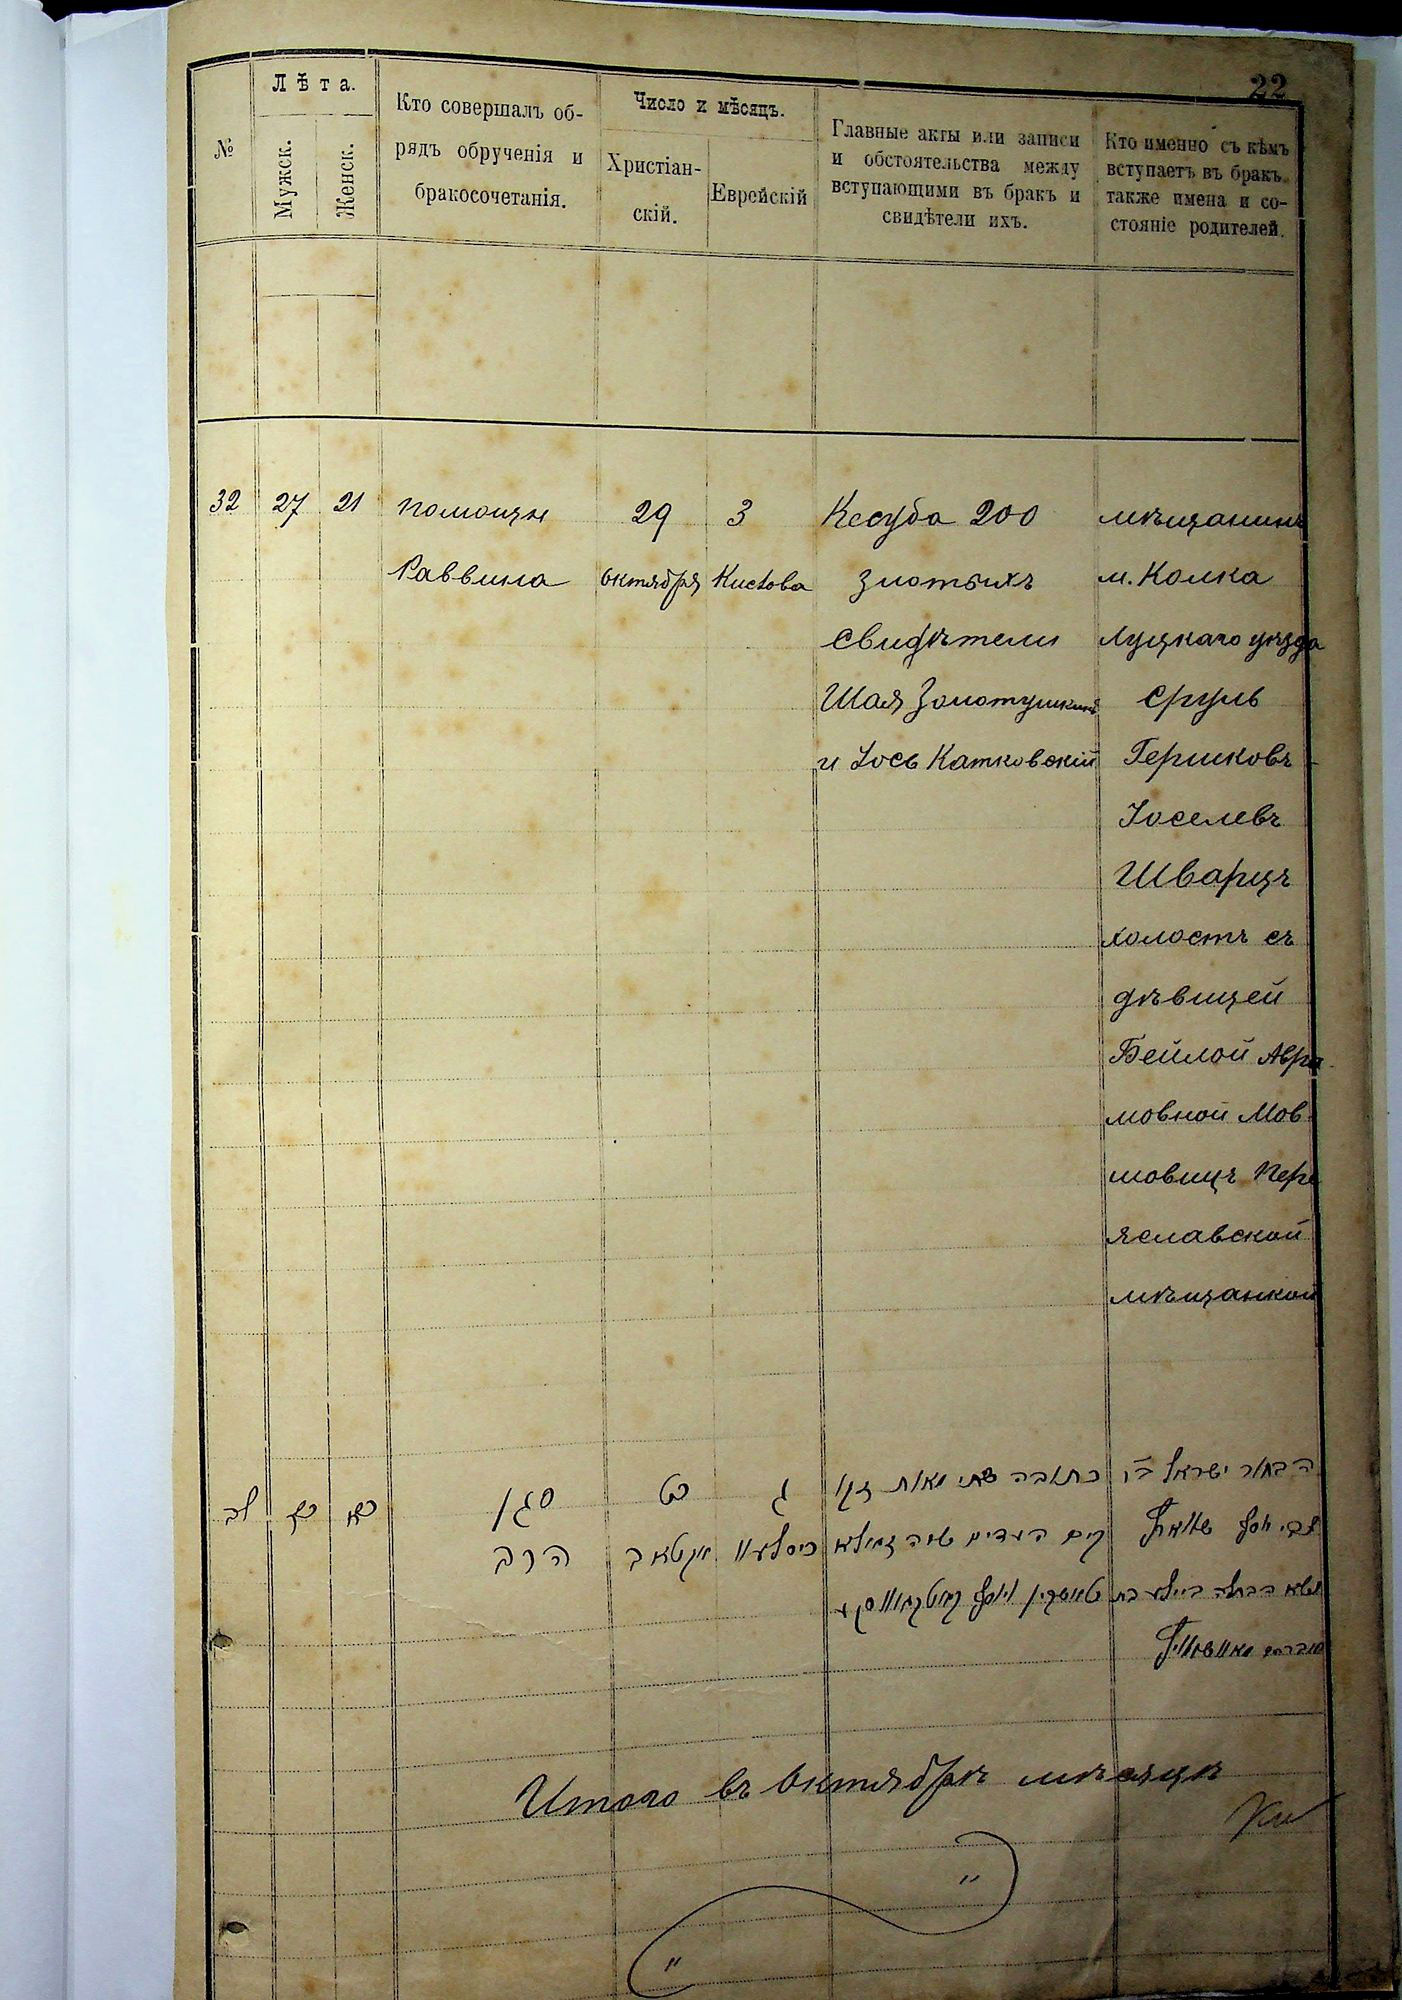 22
№
Лѣта.
Мужск.
Женск.
Кто совершалъ об-
рядъ обрученія и
бракосочетанія.
Число и мѣсяцъ.
Христіан-
скій.
Еврейскій
Главные акты или записи
и обстоятельства между
вступающими въ бракъ и
свидѣтели ихъ.
Кто именно съ кѣмъ
вступаетъ въ бракъ,
также имена и со-
стояніе родителей.
32
27
21
помощн
Раввина
29
октября
3
Кислова
Кесуба 200
злотыхъ
свидѣтели
Шая Золотушкинъ
и Іось Катковскій
мѣщанинъ
м. Колка
Луцкаго уѣзда
Сруль
Гершковъ
Іоселевъ
Шварцъ
холостъ съ
дѣвицей
Бейлой Авра
мовной Мов
шовичъ Пере
яславской
мѣщанкой
לב
כז
כא
סגן
הרב
כט
אקטאב
ג
כיסלעוו
כתובה שתי מאות זקו
קים העדים
הבחור ישראל
נשא הבתולה ביילע בת
Итого въ октябрѣ мѣсяцѣ